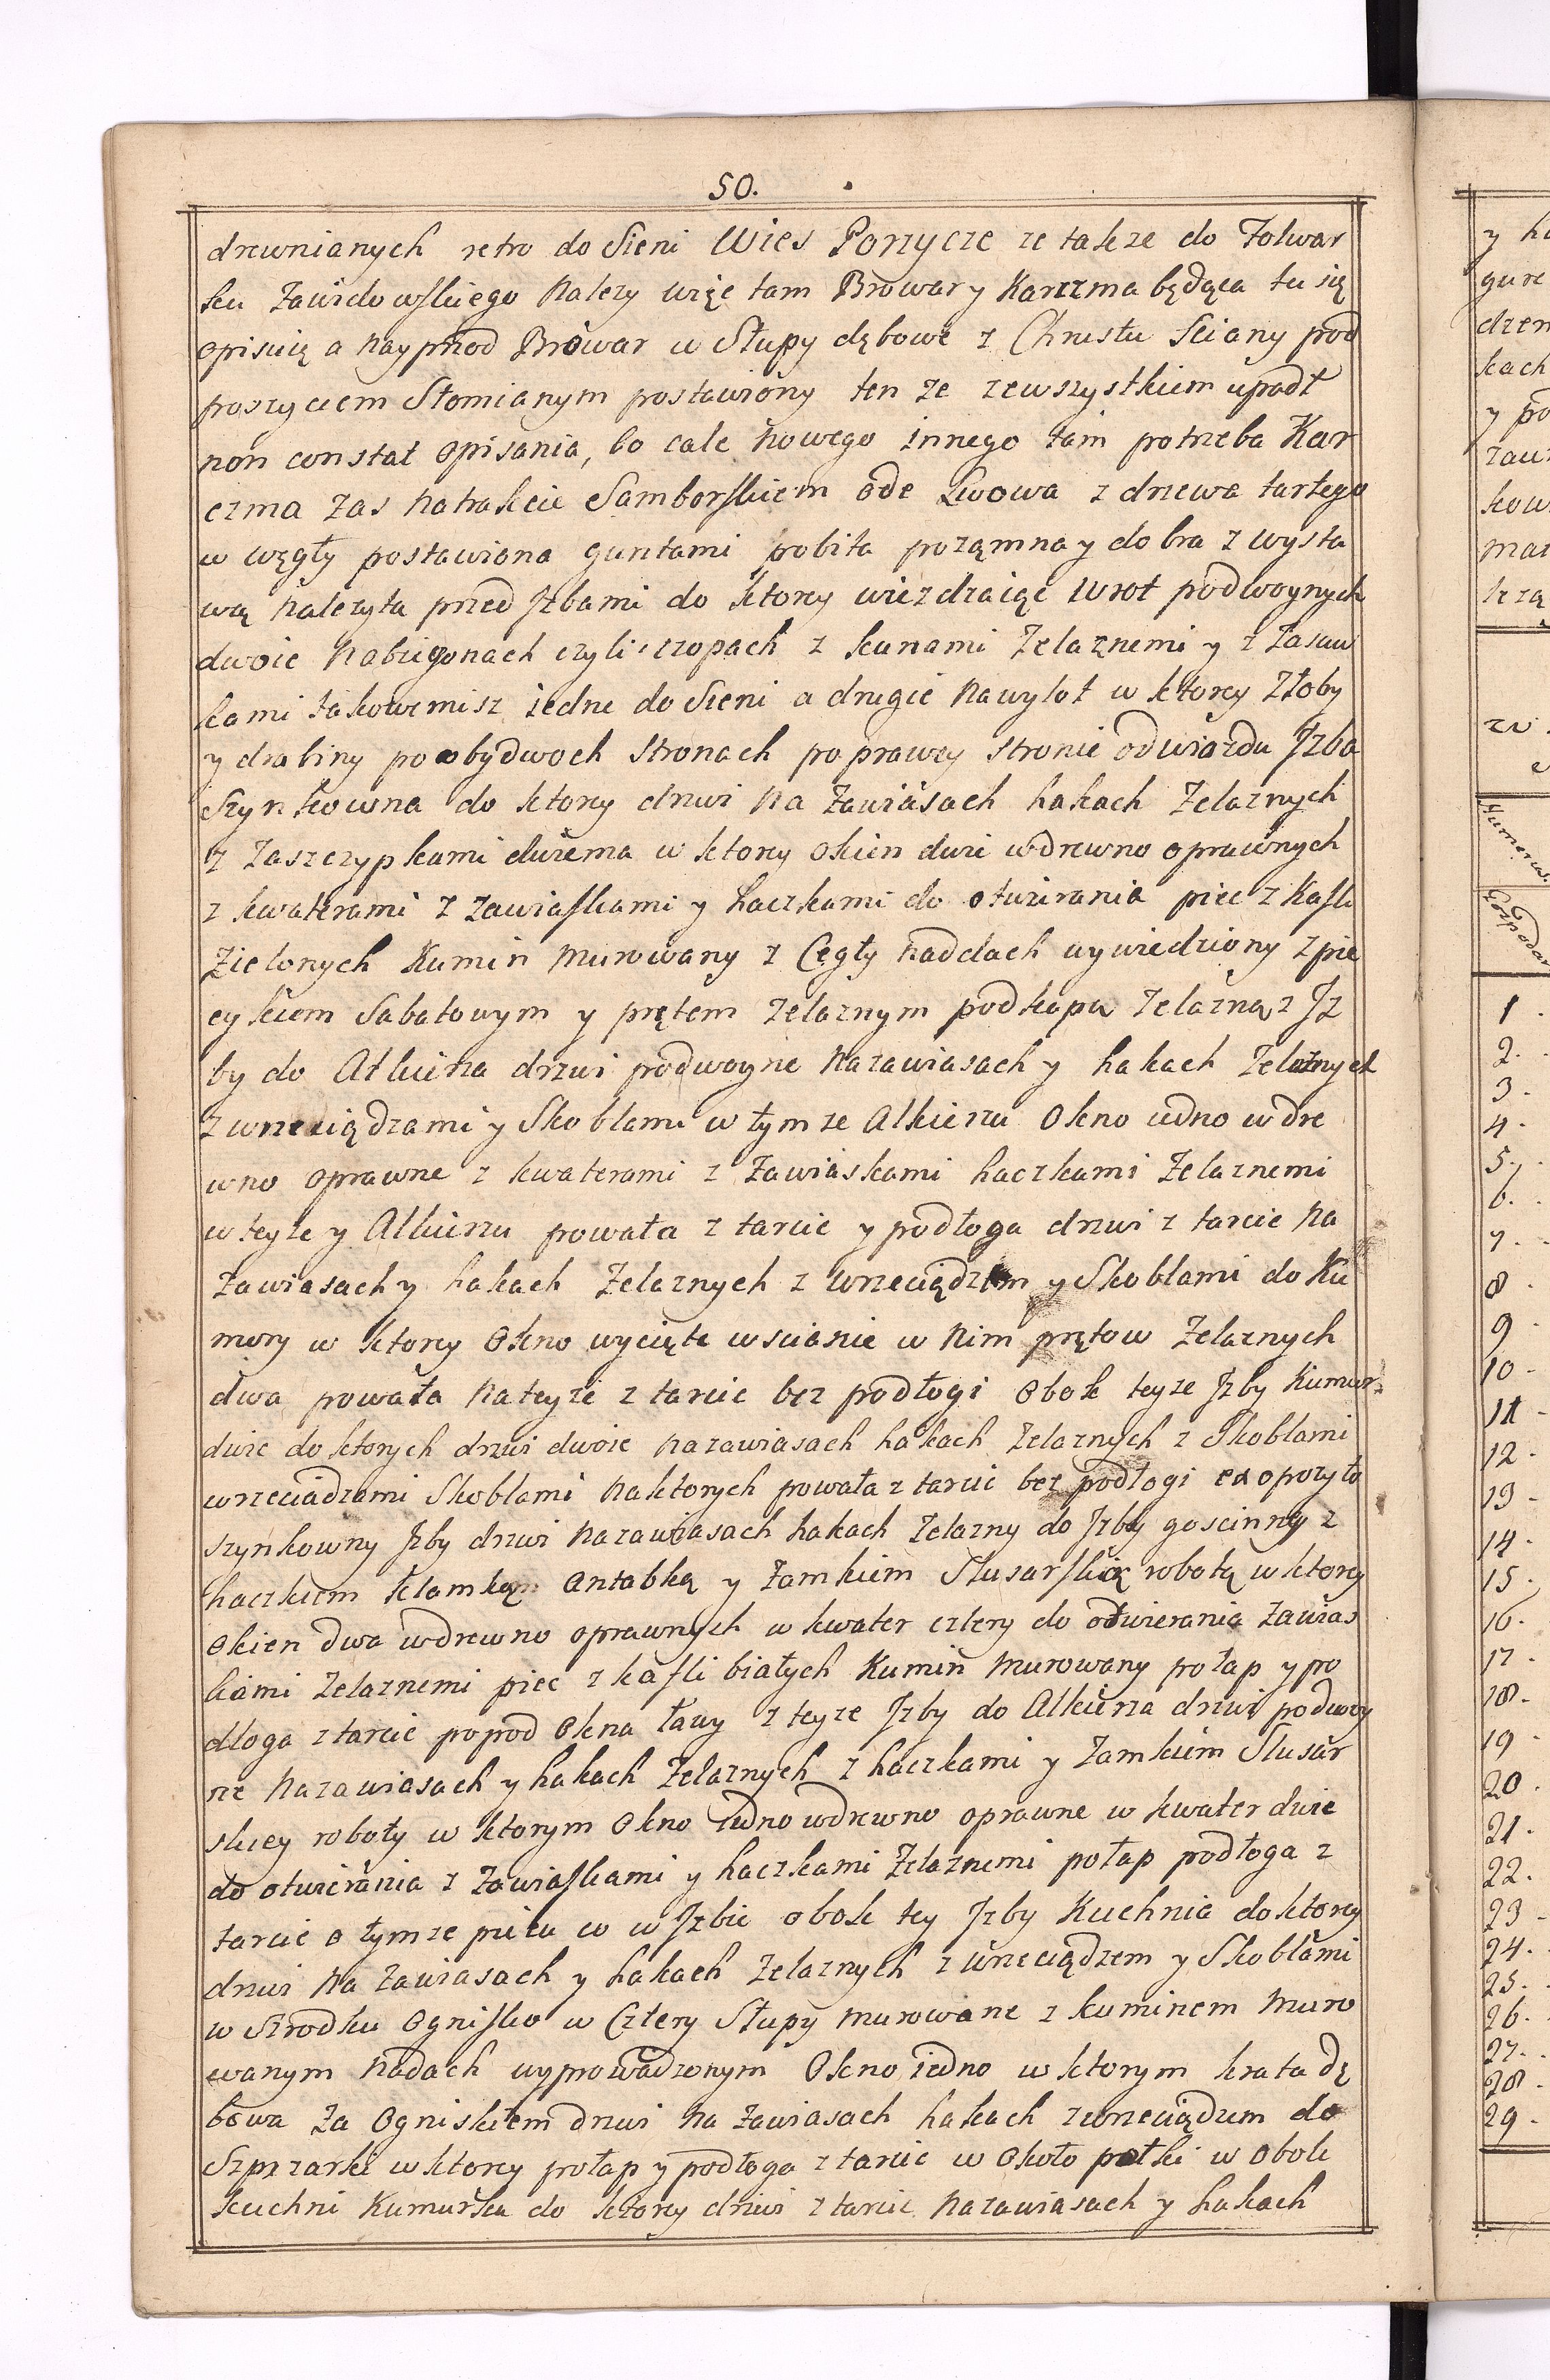 50.
drewnianych retro do Sieni Wies Porzycze ze takze do Folwar
ku Zawidowskiego Nalezy więc tam Browar y Karczma będąca tu się
opisuią a Nayprzod Browar w Słupy dębowe z Chrustu Sciany pod
poszyciem Słomianym postawiony ten ze zewszystkiem upadł
non constat opisania, bo cale Nowego innego tam potrzeba Kar
czma zas Natrakcie Samborskiem ode Lwowa z drzewa tartego
w węgły postawiona guntami pobita pozamna y dobra z wysta
wą Nalezyta przed Izbami do ktorey wiezdzaiąc wrot podwoynych
dwoie Nabiegonach czyli czopach z kunami Zelaznemi y z Zasuw
kami takowemisz iedne do Sieni a drugie Nawylot w ktorey Złoby
y drabiny po obydwoch stronach po prawey stronie odwiazdu Izba
Szynkowna do ktorey drzwi Na Zawiasach hakach Zelaznych
z Zaszczypkami dwiema w ktorey okien dwie wdrewno oprawnych
z kwaterami z zawiaskami y haczkami do otwirania piec z Kafli
Zielonych Kumin Murowany z Cegły Naddach wywiedziony z pie
cykiem Sabatowym y prętem Zelaznym podkapą Zelazną z Iz
by do Alkierza drzwi podwoyne Nazawiasach y hakach Zelaznych
z wrzeciądzami y Skoblami w tym ze Alkierzu Okno iedno w dre
wno oprawne z kwaterami z Zawiaskami haczkami Zelaznemi
w teyze y Alkierzu powała z tarcic y podłoga drzwi z tarcic Na
Zawiasach y hakach Zelaznych z wrzeciądzem y Skoblami do Ku
mory w ktorey Okno wycięte wscianie w Nim prętow Zelaznych
dwa powała Nateyze z tarcic bez podłogi Obok teyze Izby Kumur
dwie do ktorych drzwi dwoie Nazawiasach hakach Zelaznych z Skoblami
wrzeciadzami Skoblami Naktorych powała z tarcic bez podłogi ex opozyto
szynkowny Izby drzwi Nazawiasach hakach Zelazny do Izby goscinney z
haczkiem klamką Antabką y Zamkiem Slusarską robotą w ktorey
Okien dwa wdrewno oprawnych w kwater cztery do odwierania Zawias
kami Zelaznemi piec z kafli białych Kumin Murowany połap y po
dłoga z tarcic popod Okna ławy z teyze Izby do Alkierza drzwi podwoy
ne Nazawiasach y hakach Zelaznych z haczkami y Zamkiem Slusar
skiey roboty w ktorym Okno iedno wdrewno oprawne w kwater dwie
do otwierania z Zawiaskami y haczkami Zelaznemi połap podłoga z
tarcic o tymze piecu co w Izbie obok tey Izby Kuchnia do ktorey
drzwi Na Zawiasach y hakach Zelaznych z wrzeciądzem y Skoblami
w Szrodku Ognisko w Cztery Słupy murowane z kuminem Muro
wanym Nadach wyprowadzonym Okno iedno w ktorym krata dę
bowa Za Ogniskiem drzwi Na Zawiasach hakach zwrzeciądzem do
Szpizarki w ktorey połap y podłoga z tarcic w Około połki w obok
kuchni Kumurka do ktorey drzwi z tarcic Nazawiasach y hakach
y
gure
kach
Numerus
1
2.
3.
4.
5.
6.
7.
8
9
10
11
12
13
14.
15.
16.
17.
18.
19
20.
21.
22.
23
24.
25.
26.
27.
28
29